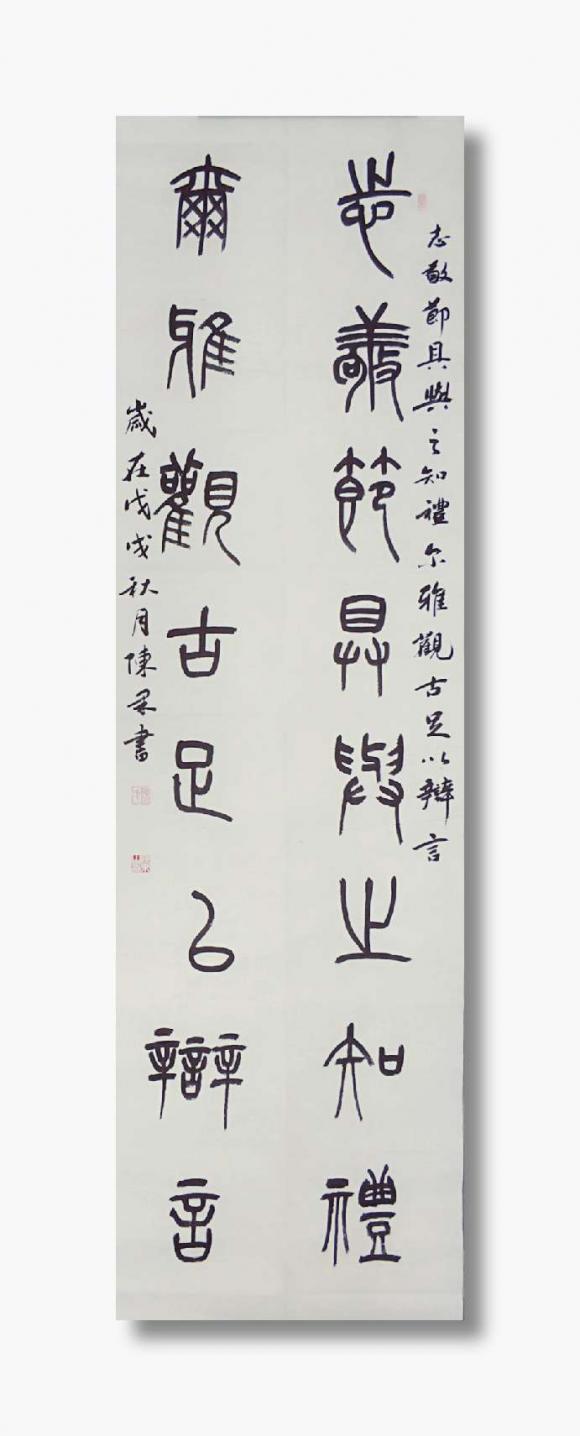 志敬節具與之知禮尔雅觀古足以辯言
志敬節具與之知禮
爾雅觀古足以辯言
歲在戊戌秋月陳書